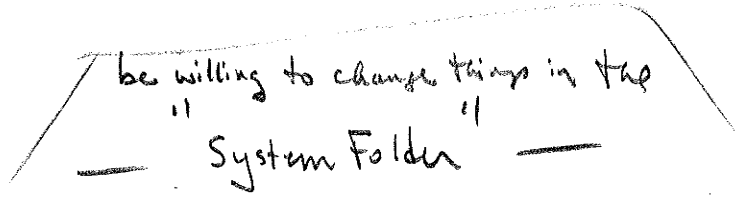 be willing to change things in the
" System Folder "